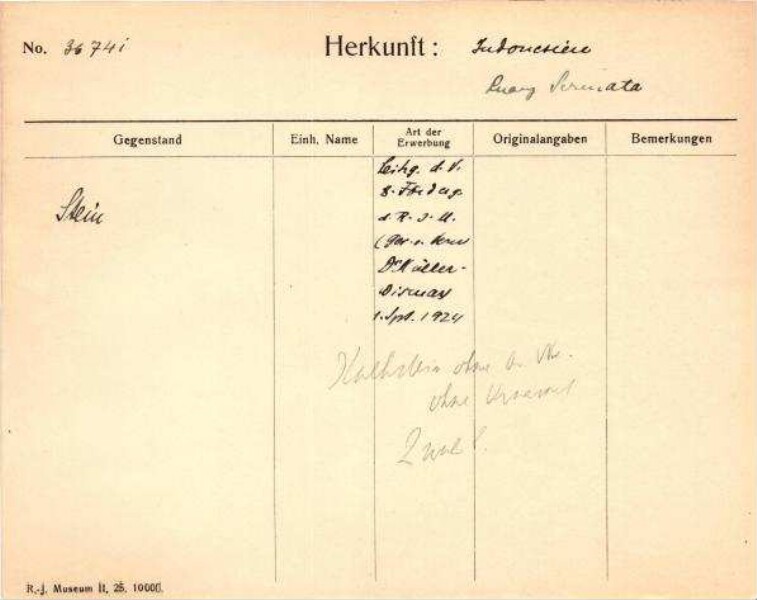 No. 36 74i
Herkunft: Indonesien
Luang Sermata
Gegenstand
Einh. Name
Art der Erwerbung
Originalangaben
Bemerkungen
Stein
Leihg. d. V.
z. Förderg.
d. R. J. M.
Dr Müller-
Wismar
1. Spt. 1924
Kalkstein ohne
ohne
R.-J. Museum II, 25. 10000.